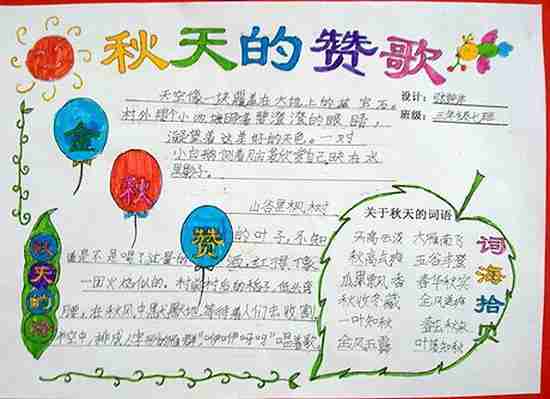 秋天的赞歌
天空像一块覆盖在大地上的蓝宝石。
村外那个小池塘睁着碧澄澄的眼睛,
凝望着这美好的天色。一对
小白鹅侧着脑袋欣赏自己映在水
里影子。
山谷里枫树
的叶子,不知
道是不是喝了过量的酒,红得像
一团火焰似的。村前村后的稻子,低头弯
腰,在秋风中默默地等待着人们去收割
空中,排成人字的雁群"咿咿呀呀"唱着歌
设计:
班级:三年级七班
金
秋
赞
秋天的
关于秋天的词语
天高云淡 大雁南飞
秋高气爽 五谷丰登
瓜果飘香 春华秋实
秋收冬藏 金风送爽
一叶知秋 春花秋月
金风玉露 叶落知秋
词海拾贝